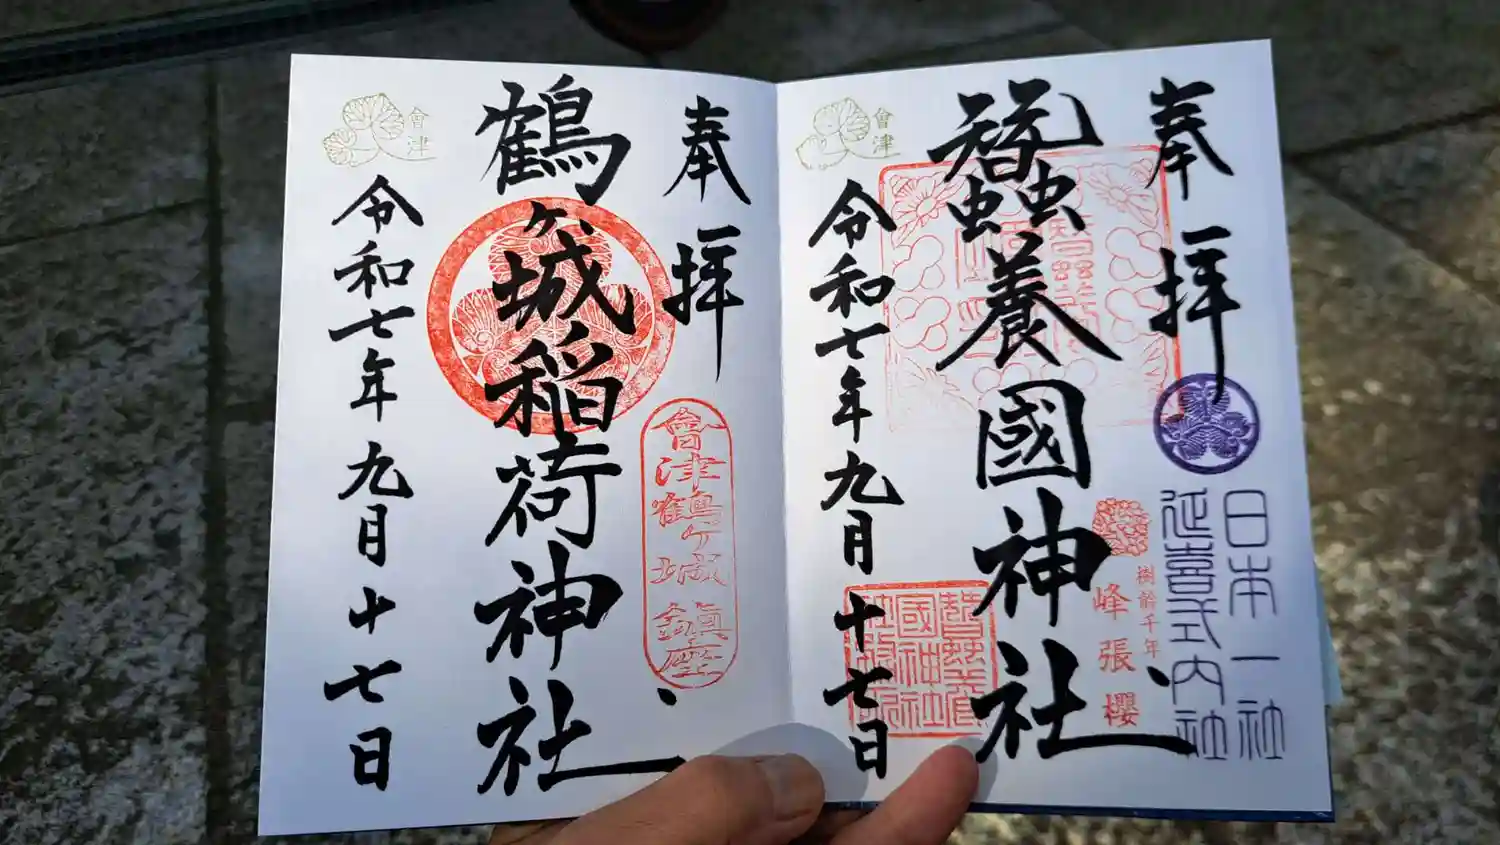 奉拝
日本一社
延喜式内社
蠶養國神社
樹齢千年
峰張櫻
會津
令和七年九月十七日
奉拝
會津鶴ケ城鎮座
鶴ケ城稲荷神社
會津
令和七年九月十七日